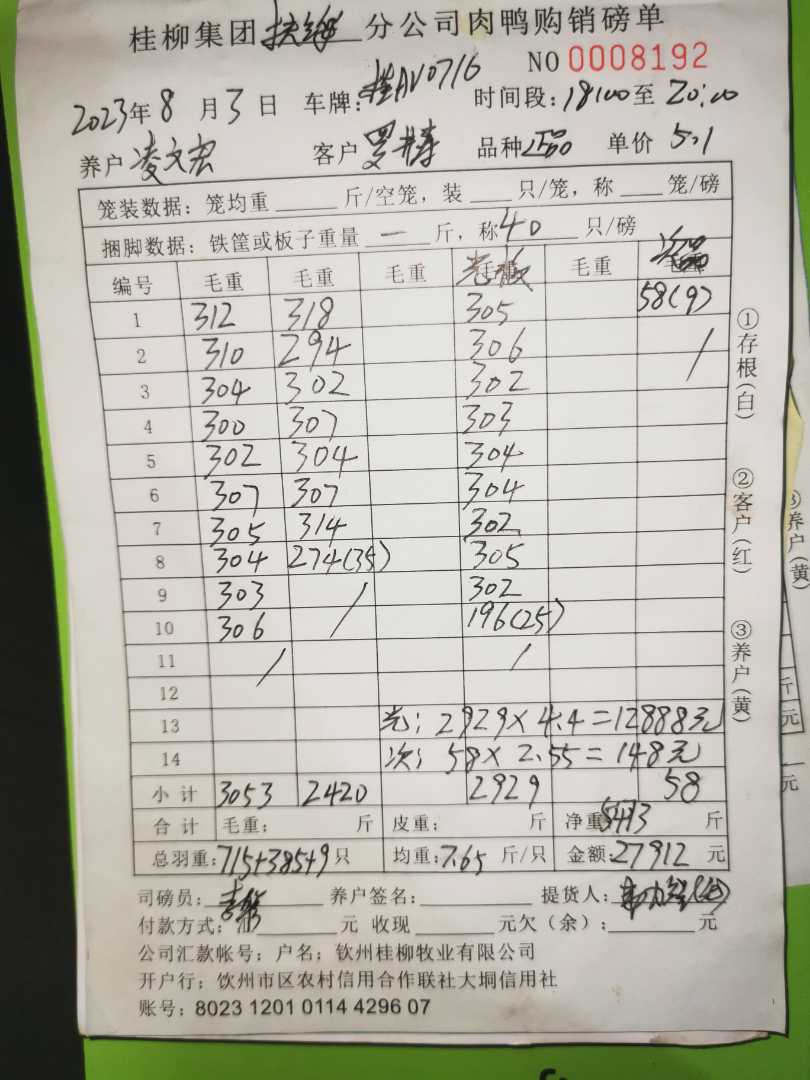 桂柳集团扶绥分公司肉鸭购销磅单
NO 0008192
2023年8月3日 车牌:桂AV0716 时间段:18:00至20:00
养户凌文宏 客户 品种正品 单价5.1
笼装数据:笼均重 斤/空笼,装 只/笼,称 笼/磅
捆脚数据:铁筐或板子重量 一 斤,称40 只/磅
编号 毛重 毛重 毛重 毛重 次品
1 312 318 305 58(9)
2 310 294 306 /
3 304 302 302
4 300 307 303
5 302 304 304
6 307 307 304
7 305 314 302
8 304 274(35) 305
9 303 / 302
10 306 196(25)
11 / /
12
13 光:2929×4.4=12888元
14 次:58×2.55=148元
小计 3053 2420 2929 58
合计 毛重: 斤 皮重: 斤 净重:5473 斤
总羽重:715+385+9只 均重:7.65斤/只 金额:27912元
司磅员: 养户签名: 提货人:
付款方式: 元 收现 元欠(余): 元
公司汇款帐号:户名;钦州桂柳牧业有限公司
开户行:钦州市区农村信用合作联社大垌信用社
账号:8023 1201 0114 4296 07
①存根(白)
②客户(红)
③养户(黄)
③养户(黄)
斤
元
元